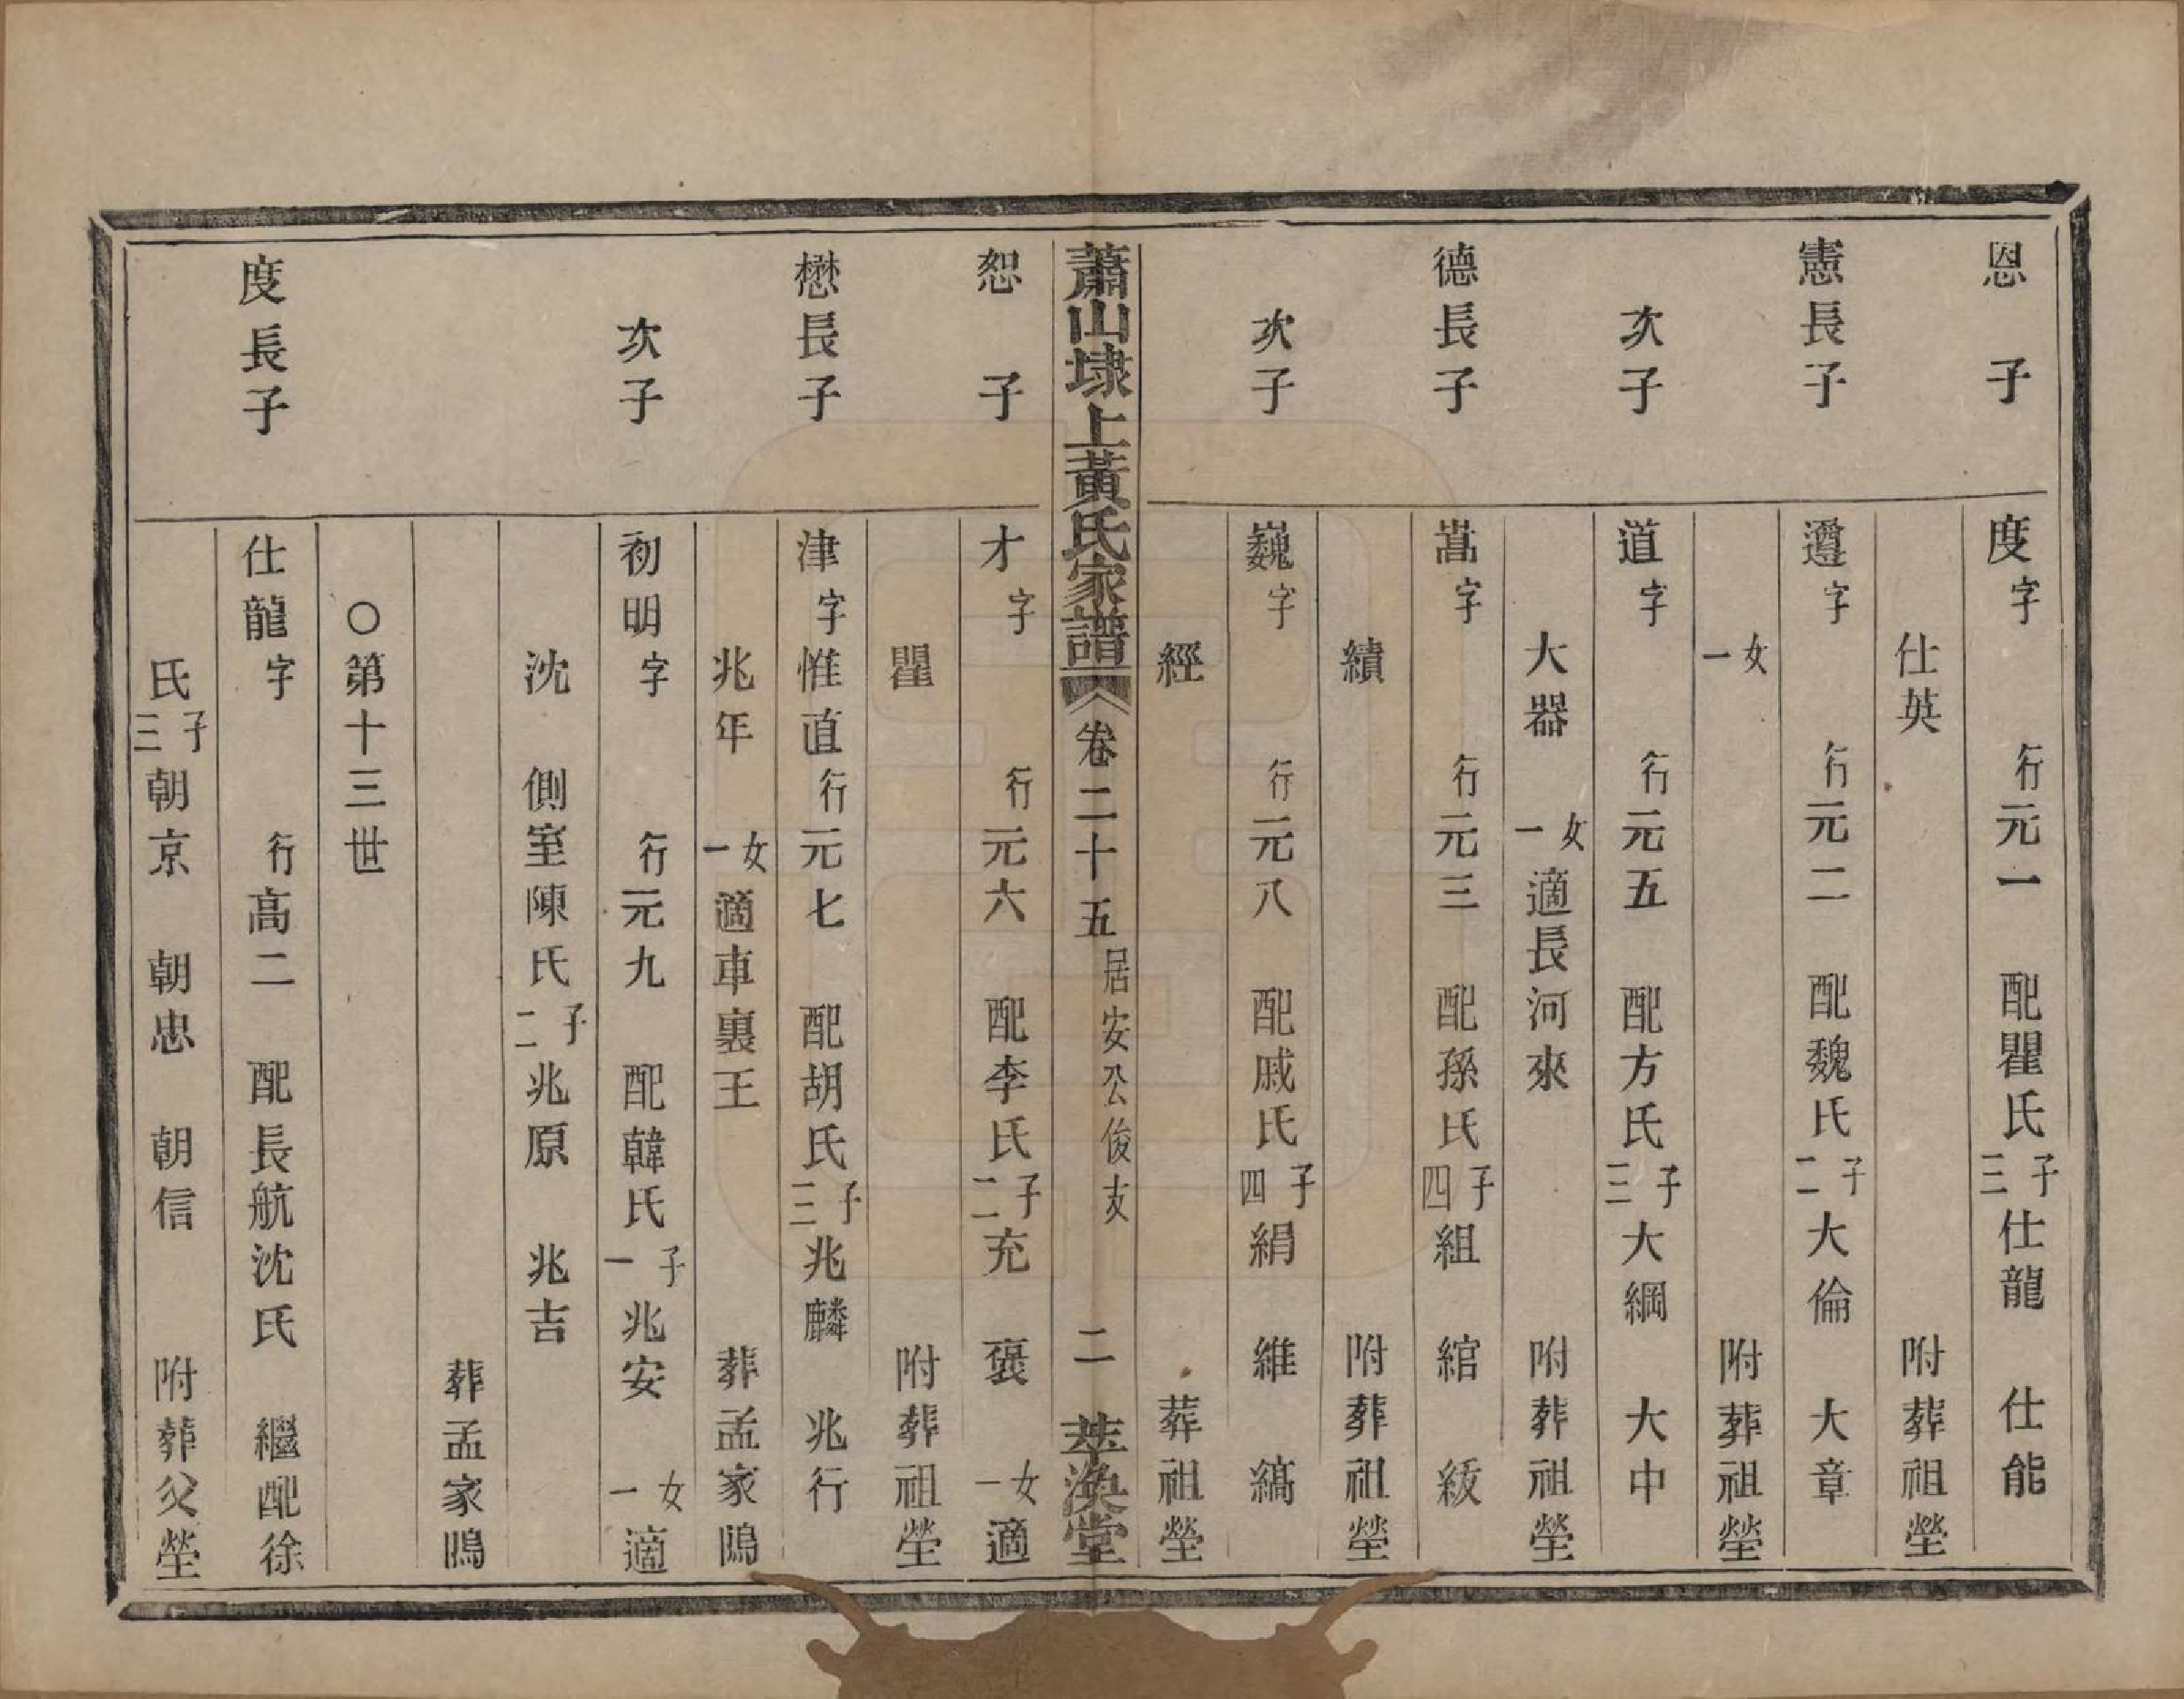 恩 子 度字 行元一 配瞿氏子三仕龍 仕能
仕英 附葬祖塋
憲長子 遵字 行元二 配魏氏子二大倫 大章
女一 附葬祖塋
次子 道字 行元五 配方氏子三大綱 大中
大器 女一適長河來 附葬祖塋
德長子 嵩字 行元三 配孫氏子四組 綰 綏
績 附葬祖塋
次子 巍字 行元八 配戚氏子四絹 維 縞
經 葬祖塋
蕭山埭上黃氏家譜 卷二十五 居安公俊支 二 萃渙堂
恕 子 才字 行元六 配李氏子二充 褒 女一適
瞿 附葬祖塋
懋長子 津字惟直行元七 配胡氏子三兆麟 兆行
兆年 女一適車裏王 葬孟家隝
次子 初明字 行元九 配韓氏子一兆安 女一適
沈 側室陳氏子二兆原 兆吉
葬孟家隝
○第十三世
度長子 仕龍字 行高二 配長航沈氏 繼配徐
氏子三朝京 朝忠 朝信 附葬父塋